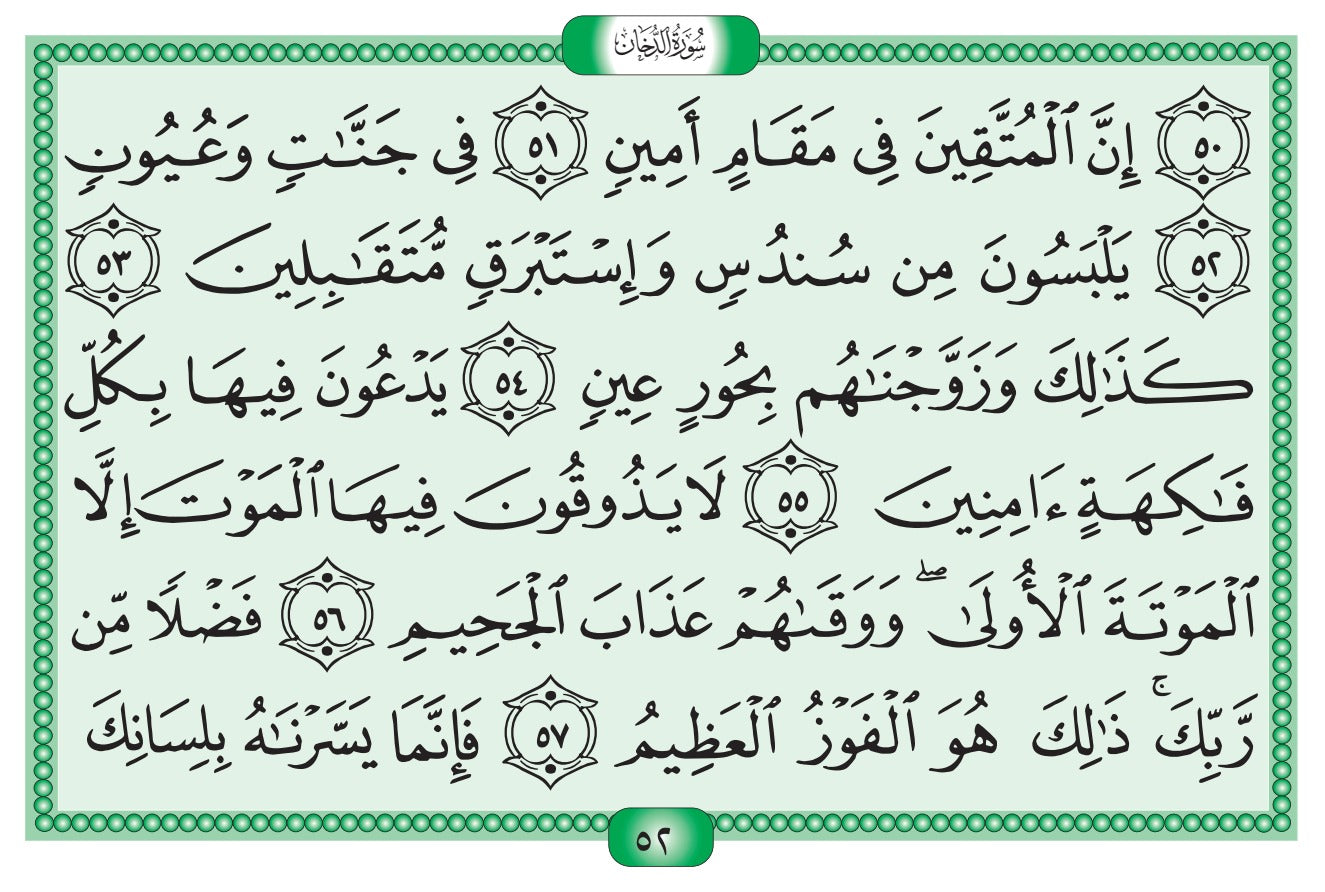 سُورَةُ الدُّخَان
٥٠ إِنَّ ٱلْمُتَّقِينَ فِى مَقَامٍ أَمِينٍ ٥١ فِى جَنَّٰتٍ وَعُيُونٍ
٥٢ يَلْبَسُونَ مِن سُندُسٍ وَإِسْتَبْرَقٍ مُّتَقَٰبِلِينَ ٥٣
كَذَٰلِكَ وَزَوَّجْنَٰهُم بِحُورٍ عِينٍ ٥٤ يَدْعُونَ فِيهَا بِكُلِّ
فَٰكِهَةٍ ءَامِنِينَ ٥٥ لَا يَذُوقُونَ فِيهَا ٱلْمَوْتَ إِلَّا
ٱلْمَوْتَةَ ٱلْأُولَىٰ ۖ وَوَقَىٰهُمْ عَذَابَ ٱلْجَحِيمِ ٥٦ فَضْلًا مِّن
رَّبِّكَ ۚ ذَٰلِكَ هُوَ ٱلْفَوْزُ ٱلْعَظِيمُ ٥٧ فَإِنَّمَا يَسَّرْنَٰهُ بِلِسَانِكَ
٥٢